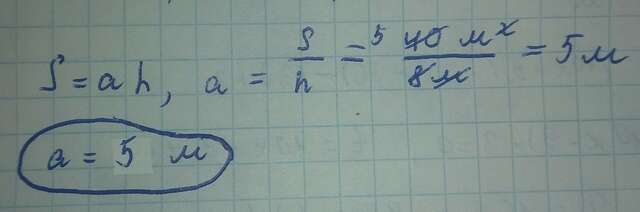 S = a h, a = S/h = ⁵ 40 м²/8м = 5 м
a = 5 м